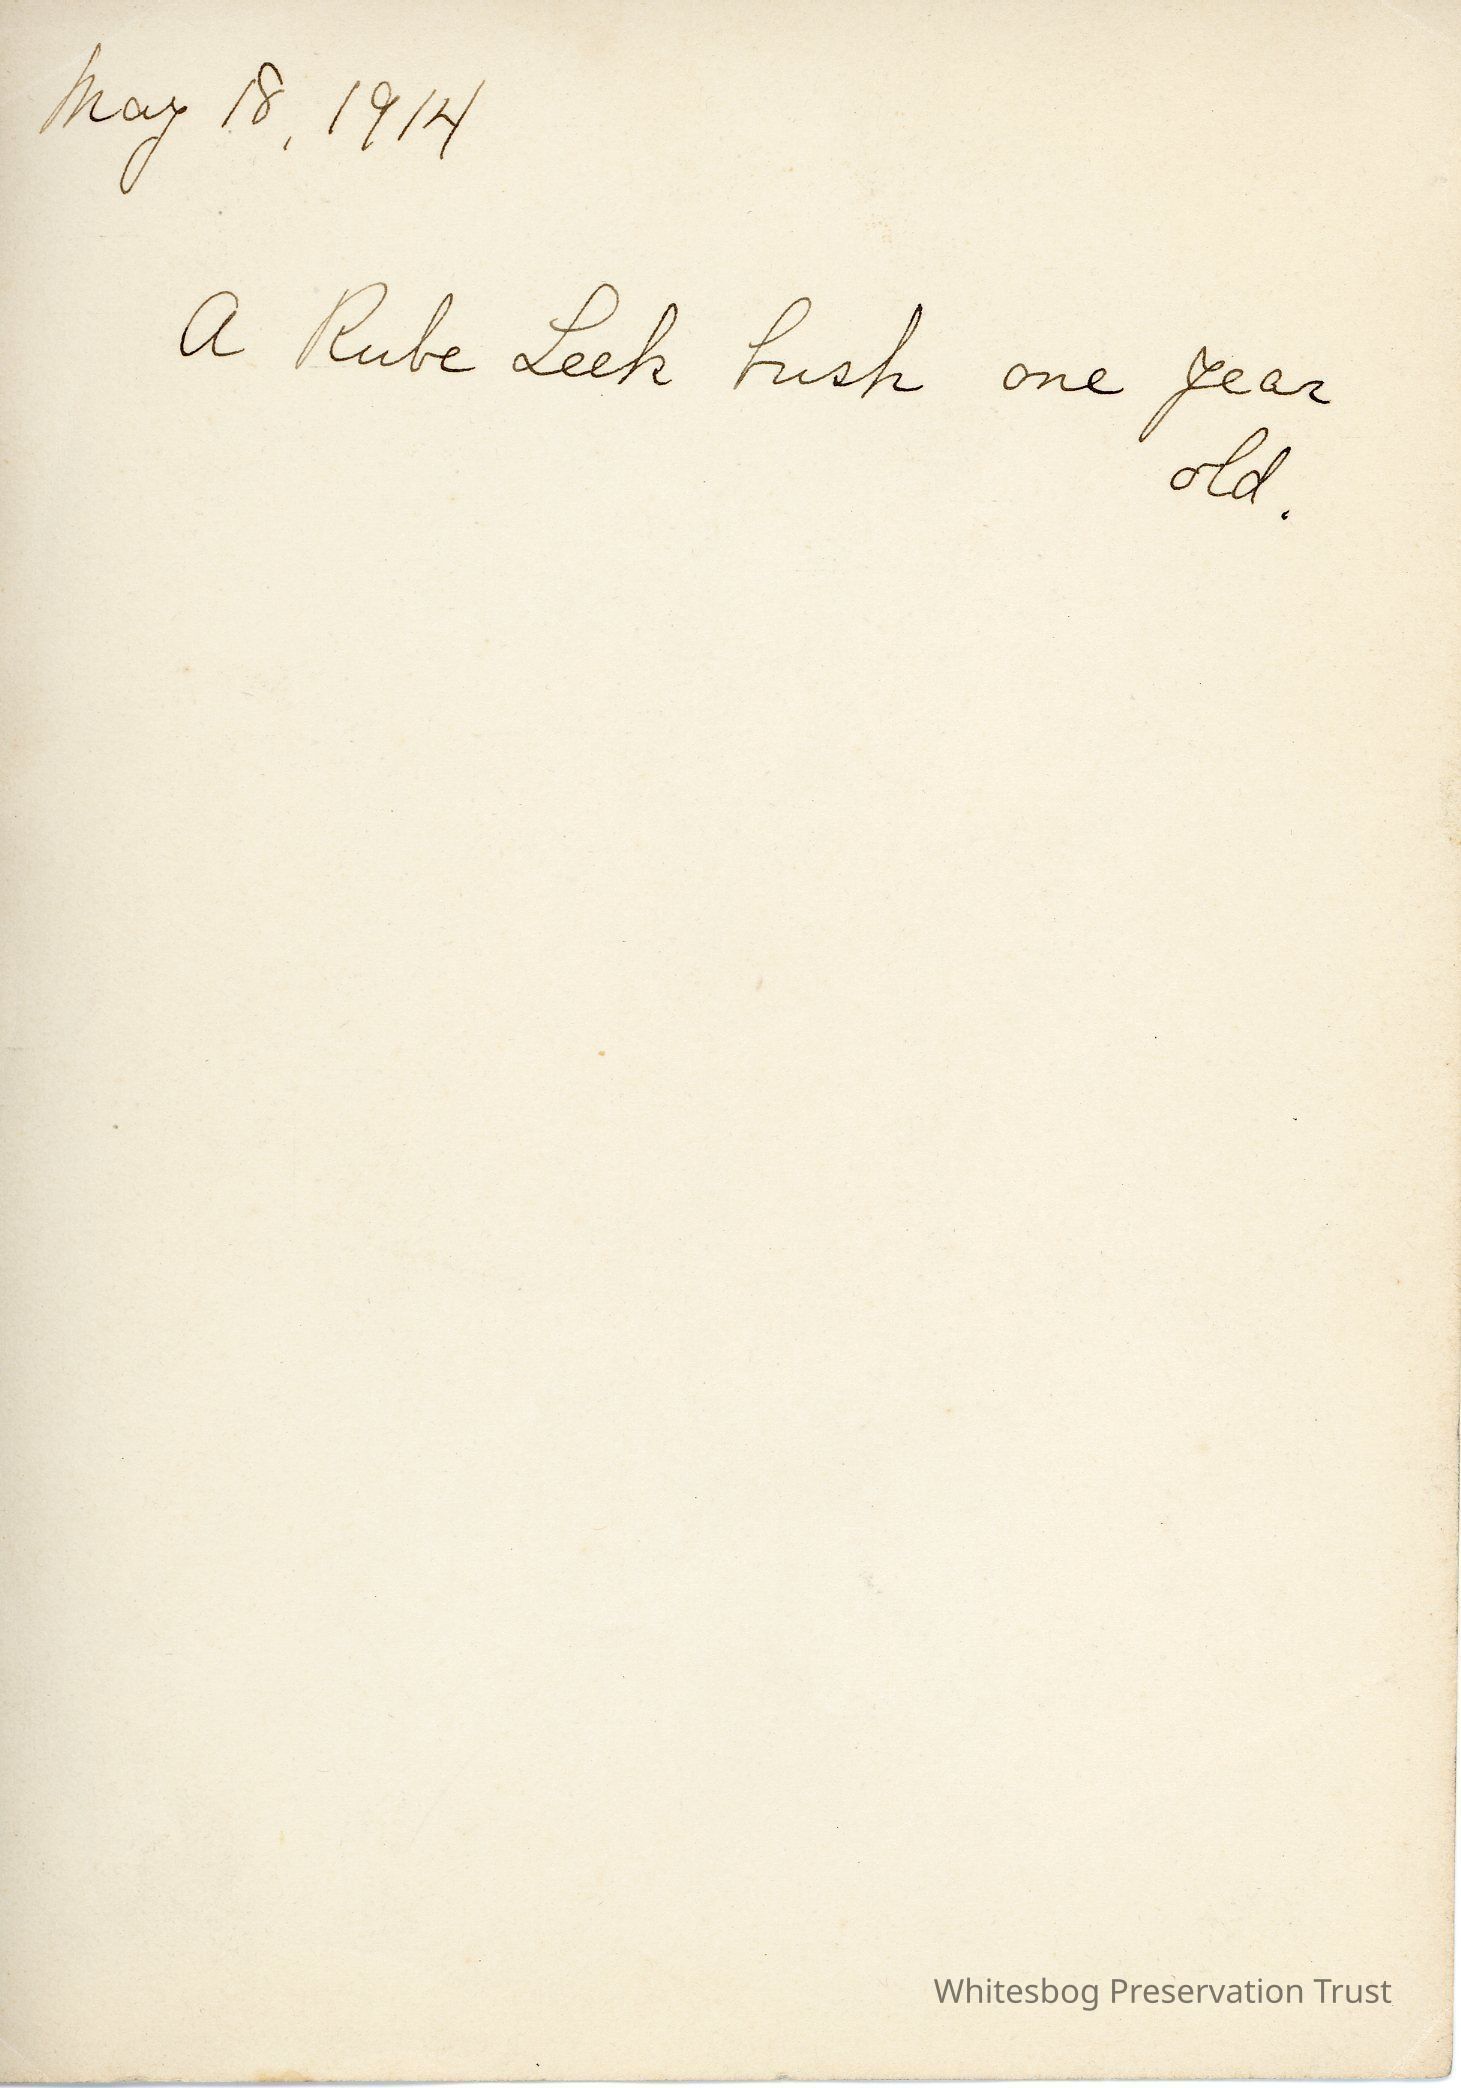 May 18, 1914
A Rube Leek bush one year
old.
Whitesbog Preservation Trust